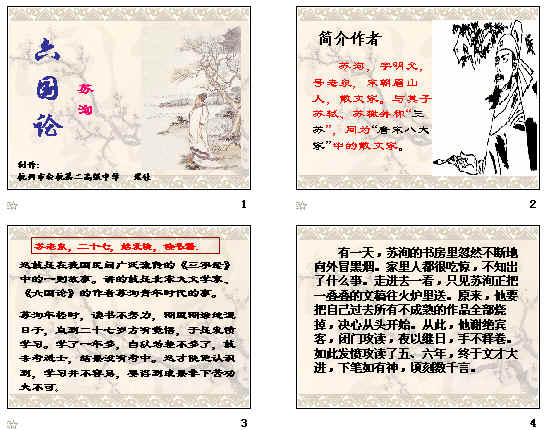 六国论
苏洵
制作:
杭州市余杭第二高级中学
1
简介作者
苏洵，字明允，
号老泉，宋朝眉山
人，散文家。与其子
苏轼、苏辙并称“三
苏”，同为“唐宋八大
家”中的散文家。
2
苏老泉，二十七，始发愤，读书籍.
这就是在我国民间广泛流传的《三字经》
中的一则故事。讲的就是北宋大文学家、
《六国论》的作者苏洵青年时代的事。
苏洵年轻时，读书不努力，糊里糊涂地混
日子，直到二十七岁方有觉悟，于是发愤
学习。学了一年多，自以为差不多了，就
去考进士，结果没有考中。这才使他认识
到，学习并不容易，要得到成果非下苦功
夫不可.
3
有一天，苏洵的书房里忽然不断地
向外冒黑烟。家里人都很吃惊，不知出
了什么事。走进去一看，只见苏洵正把
一叠叠的文稿往火炉里送。原来，他要
把自己过去所有不成熟的作品全部烧
掉，决心从头开始。从此，他谢绝宾
客，闭门攻读，夜以继日，手不释卷。
如此发愤攻读了五、六年，终于文才大
进，下笔如有神，顷刻数千言。
4